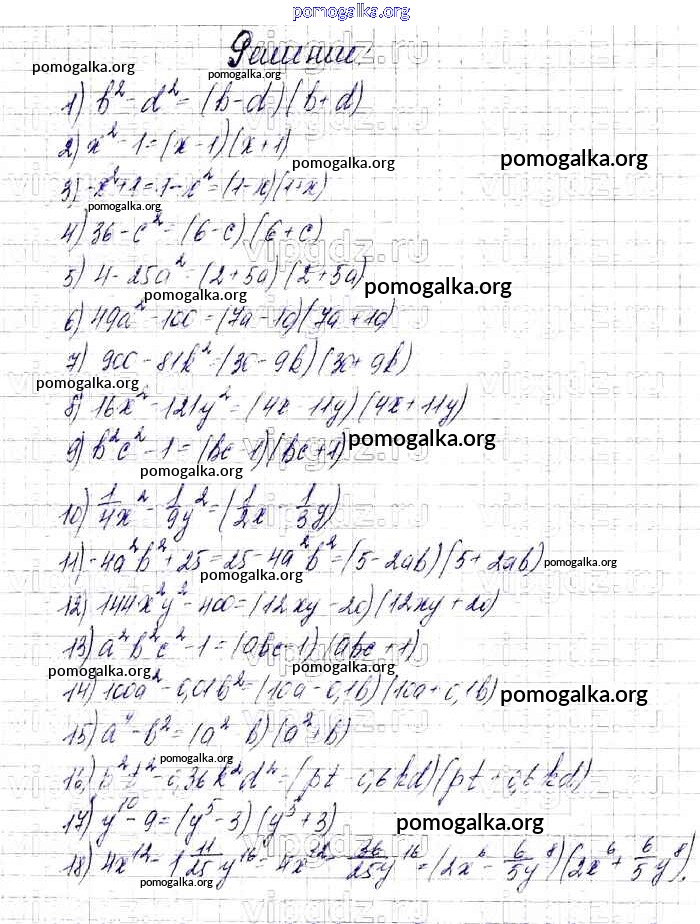 pomogalka.org
Решение:
pomogalka.org pomogalka.org
1) b² - d² = (b-d)(b+d)
2) x² - 1 = (x-1)(x+1)
pomogalka.org pomogalka.org
3) -x²+1 = 1-x² = (1-x)(1+x)
pomogalka.org
4) 36 - c² = (6-c)(6+c)
vipgdz.ru
5) 4 - 25a² = (2+5a)(2+5a)
pomogalka.org pomogalka.org
6) 49a² - 100 = (7a-10)(7a+10)
7) 900 - 81k² = (30-9k)(30+9k)
pomogalka.org
8) 16x² - 121y² = (4x-11y)(4x+11y)
9) b²c² - 1 = (bc-1)(bc+1)
pomogalka.org
pomogalka.org
10) 1/4x² - 1/9y² = (1/2x - 1/3y)
11) -4a²b² + 25 = 25 - 4a²b² = (5-2ab)(5+2ab)
pomogalka.org
pomogalka.org
12) 144x²y² - 400 = (12xy-20)(12xy+20)
13) a²b²c² - 1 = (abc-1)(abc+1)
pomogalka.org pomogalka.org
14) 100a² - 0,01b² = (10a-0,1b)(10a+0,1b)
pomogalka.org
15) a⁴ - b² = (a² b)(a²+b)
pomogalka.org
16) p²t² - 0,36k²d² = (pt-0,6kd)(pt+0,6kd)
17) y¹⁰ - 9 = (y⁵-3)(y⁵+3)
pomogalka.org
pomogalka.org
18) 4x¹² - 1 11/25 y¹⁶ = 4x¹² - 36/25y¹⁶ = (2x⁶ - 6/5y⁸)(2x⁶ + 6/5y⁸).
pomogalka.org